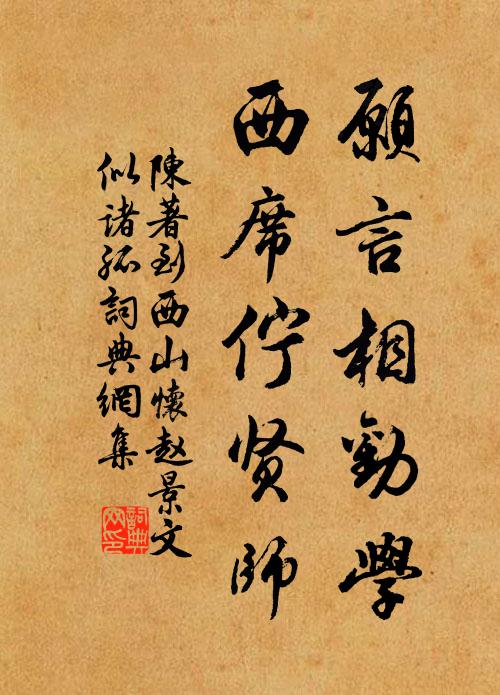 願言相勸學
西席佇贤師
陳著到西山懷赵景文
似诸孤詞典網集
詞典網印